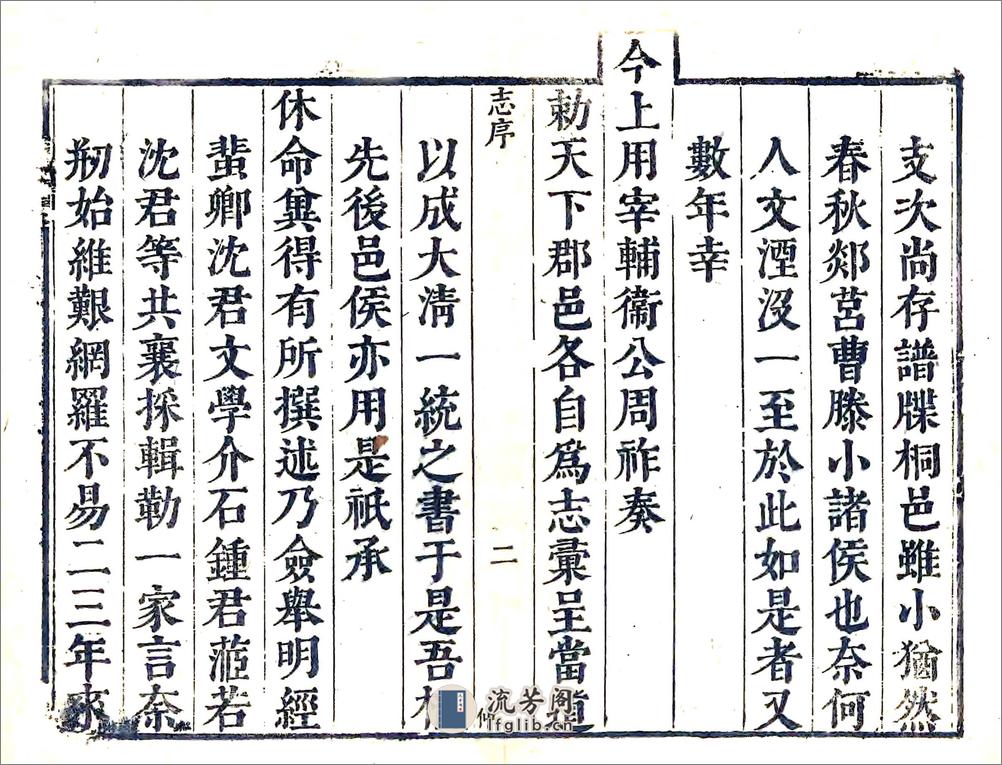 支次尚存譜牒桐邑雖小猶然
春秋郯莒曹滕小諸侯也奈何
人文湮沒一至於此如是者又
數年幸
今上用宰輔衛公周祚奏
勅天下郡邑各自爲志彙呈當道
志序
二
以成大清一統之書于是吾桐
先後邑侯亦用是祇承
休命兾得有所撰述乃僉舉明經
蜚卿沈君文學介石鍾君蒞若
沈君等共襄採輯勒一家言奈
剏始維艱網羅不易二三年來
流芳阁
lfglib.cn